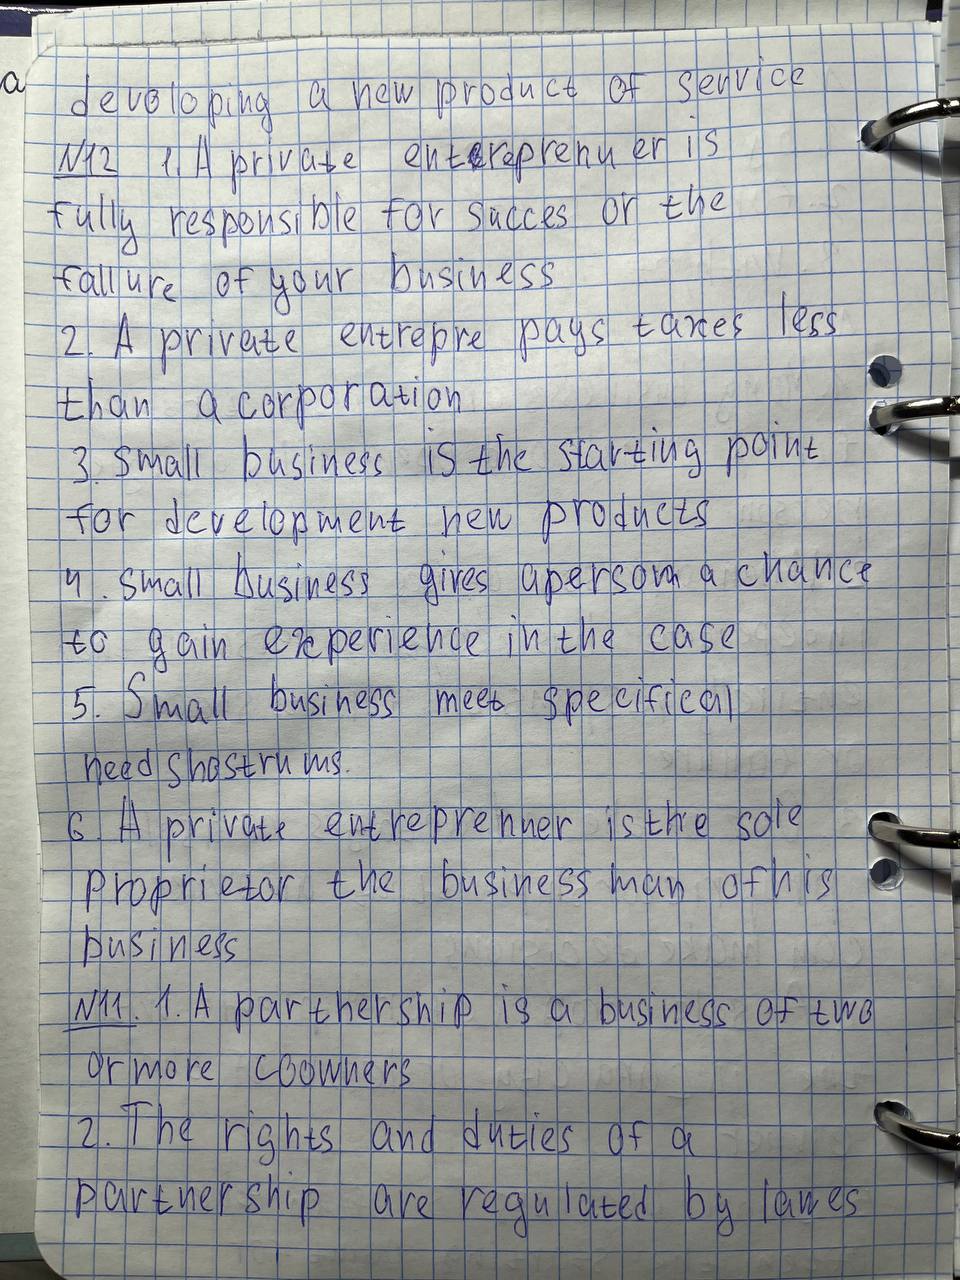 a
developing a new product of service
N12 1. A private entereprenuer is
fully responsible for succes or the
fallure of your business
2. A private entrepre pays taxes less
than a corporation
3. Small business is the starting point
for development new products
4. Small business gives a person a chance
to gain experience in the case
5. Small business meet specifical
need shostrums.
6. A private entreprenuer is the sole
proprietor the business man of his
business
N11. 1. A parthership is a business of two
or more coowners
2. The rights and duties of a
partnership are regulated by lawes